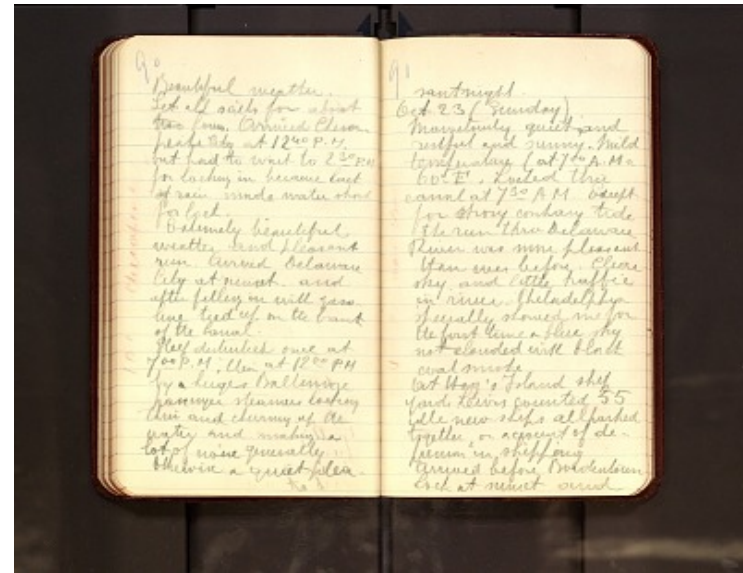 90
Beautiful weather.
Set all sails for about
two hours. Arrived Chesa-
peake City at 12⁴⁰ P.M.
but had to wait to 2³⁰ P.M
for locking in because lack
of rain made water short
for lock.
Extremely beautiful
weather and pleasant
run. Arrived Delaware
City at sunset and
after filling on with gaso-
line tied up on the bank
of the canal.
Sleep disturbed once at
7⁰⁰ P.M., then at 12⁰⁰ PM
by a huge Baltimore
passenger steamer locking
thru and churning up the
water and making a
lot of noise generally.
Otherwise a quiet plea-
91
sant night.
Oct. 23 (Sunday)
Marvelously quiet and
restful and sunny. Mild
temperature (at 7⁰⁰ A.M.=
60° F. Locked thru
canal at 7³⁰ A.M. Except
for strong contrary tide
the run thru Delaware
River was more pleasant
than ever before. Clear
sky and little traffic
in river. Philadelphia
specially showed me for
the first time a blue sky
not clouded with black
coal smoke.
At Hog's Island ship
yard Lewis counted 55
idle new ships all parked
together, on account of de-
pression in shipping
Arrived before Bordentown
Lock at sunset and